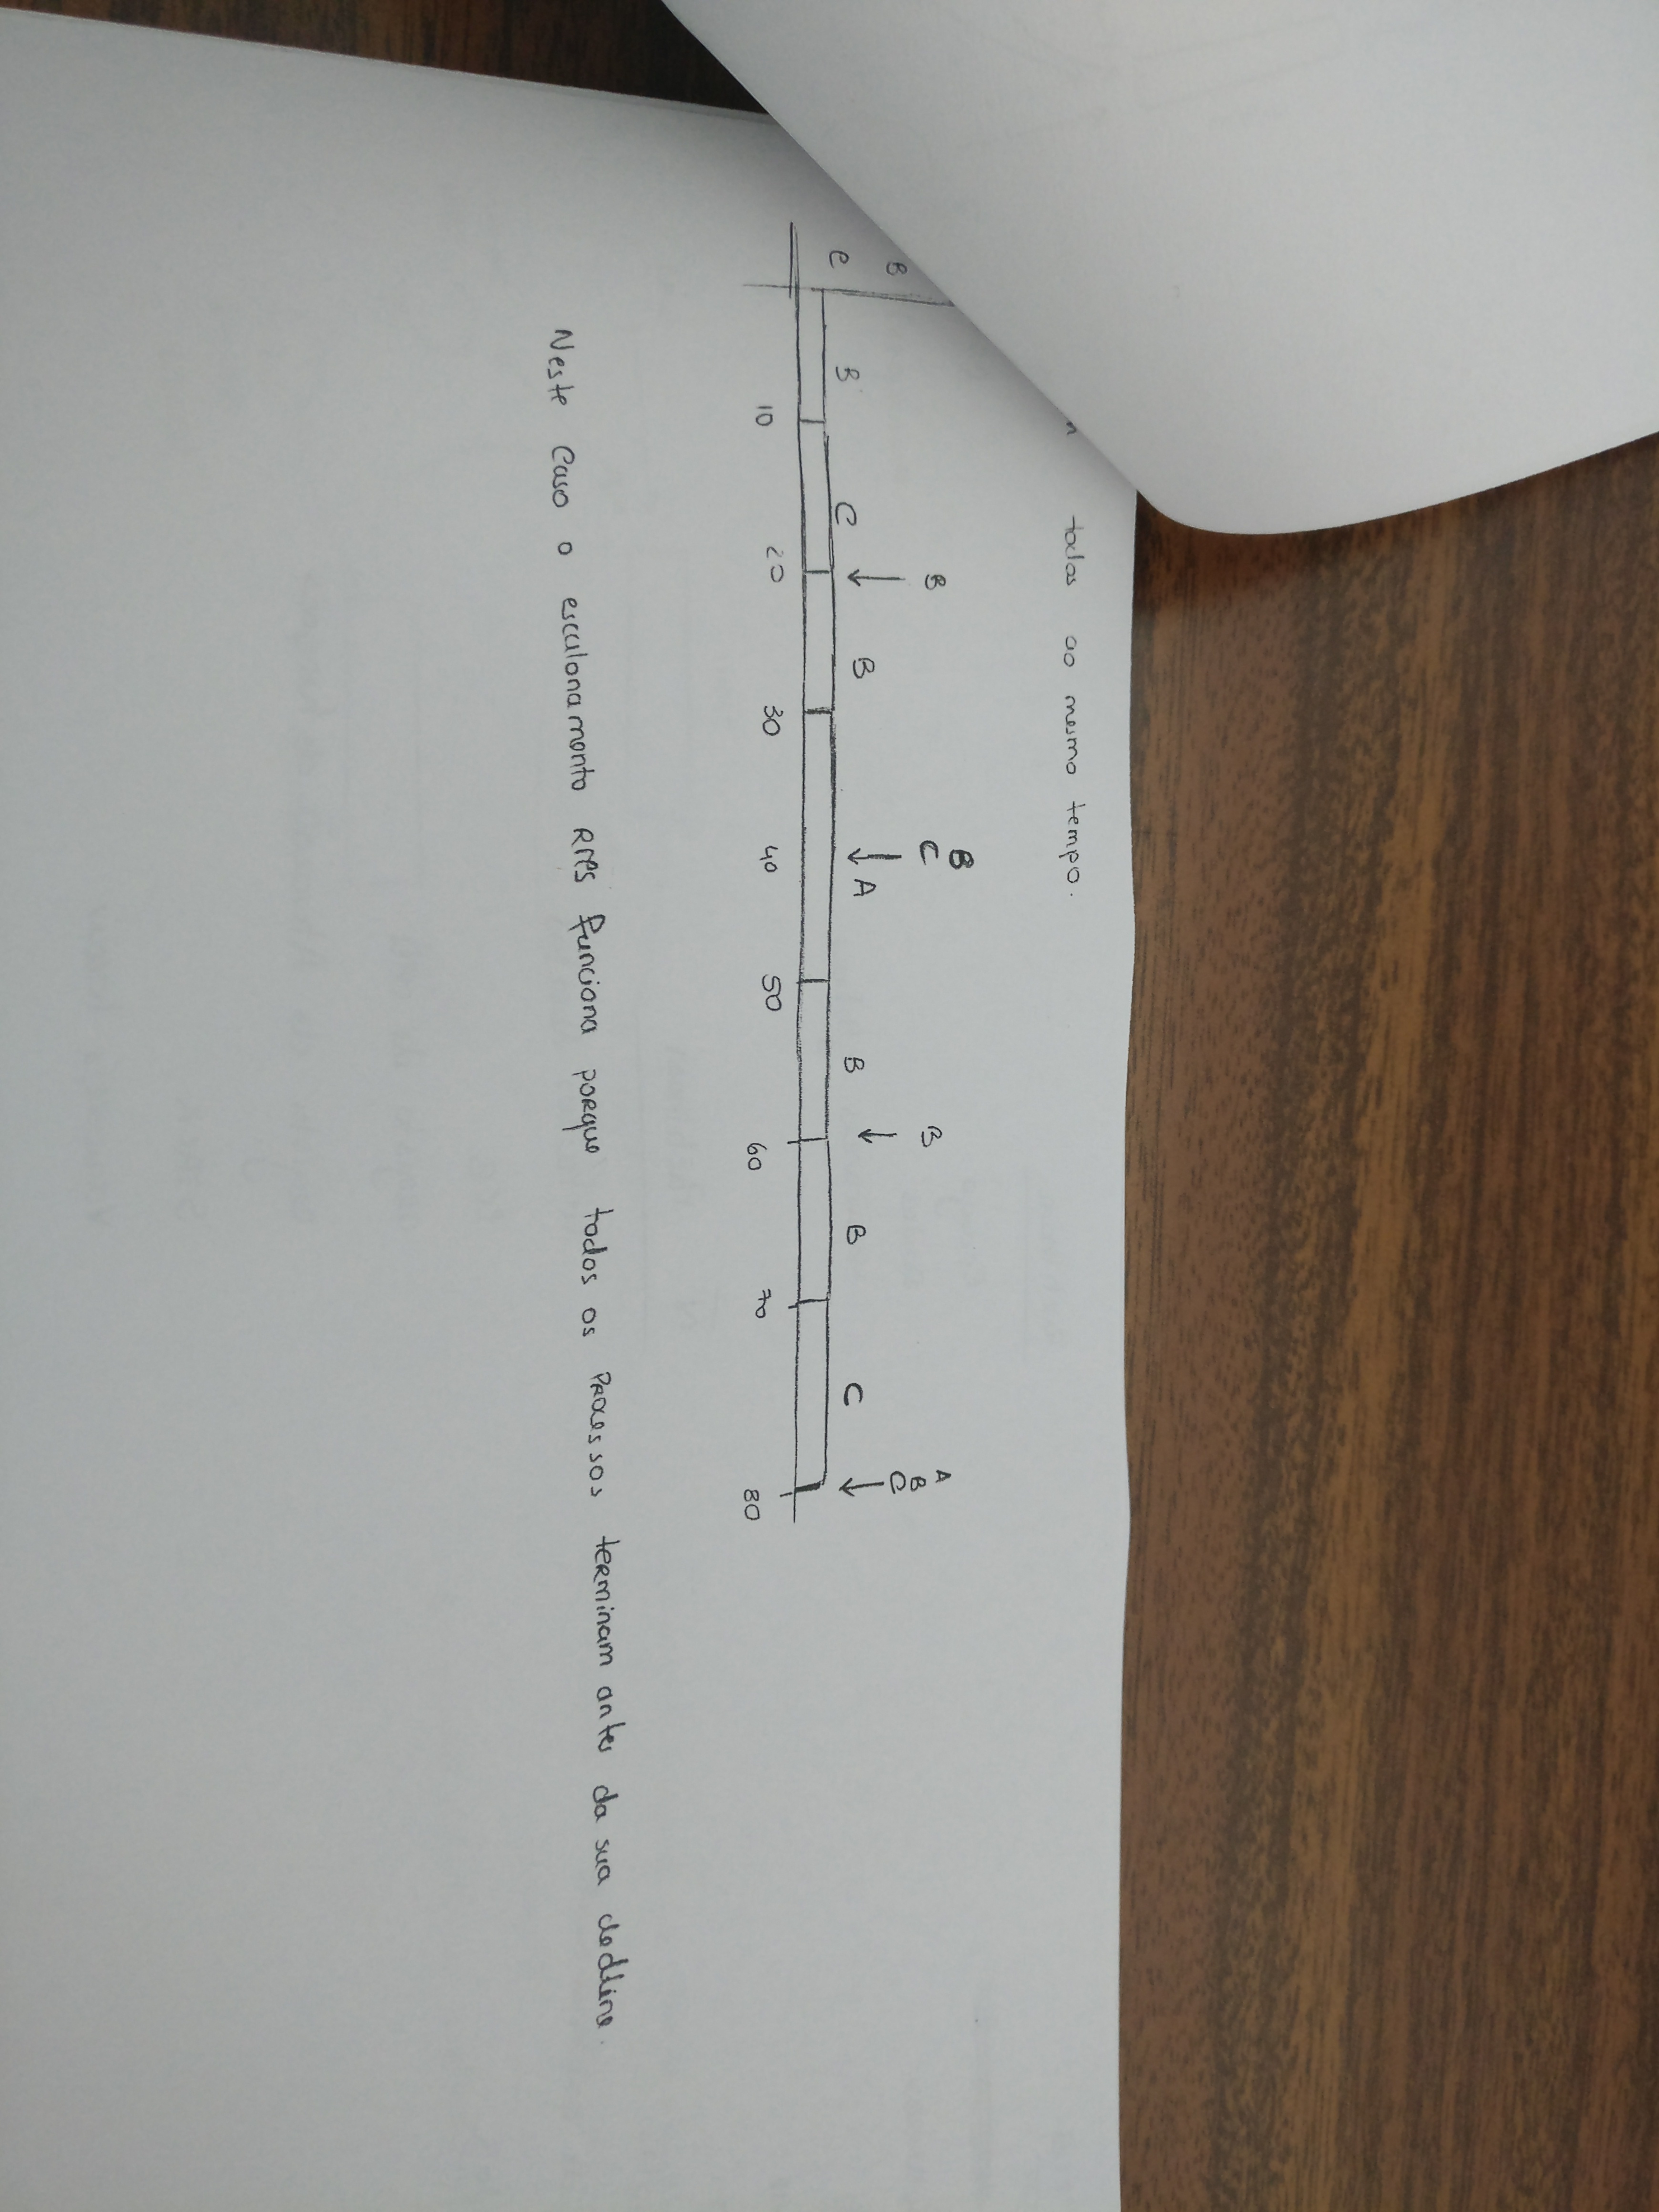 todos ao mesmo tempo.
B B B B A
C C B
C B C B A B B C
10 20 30 40 50 60 70 80
Neste Caso o escalonamento RMS funciona porque todos os Processos terminam antes da sua dedline.